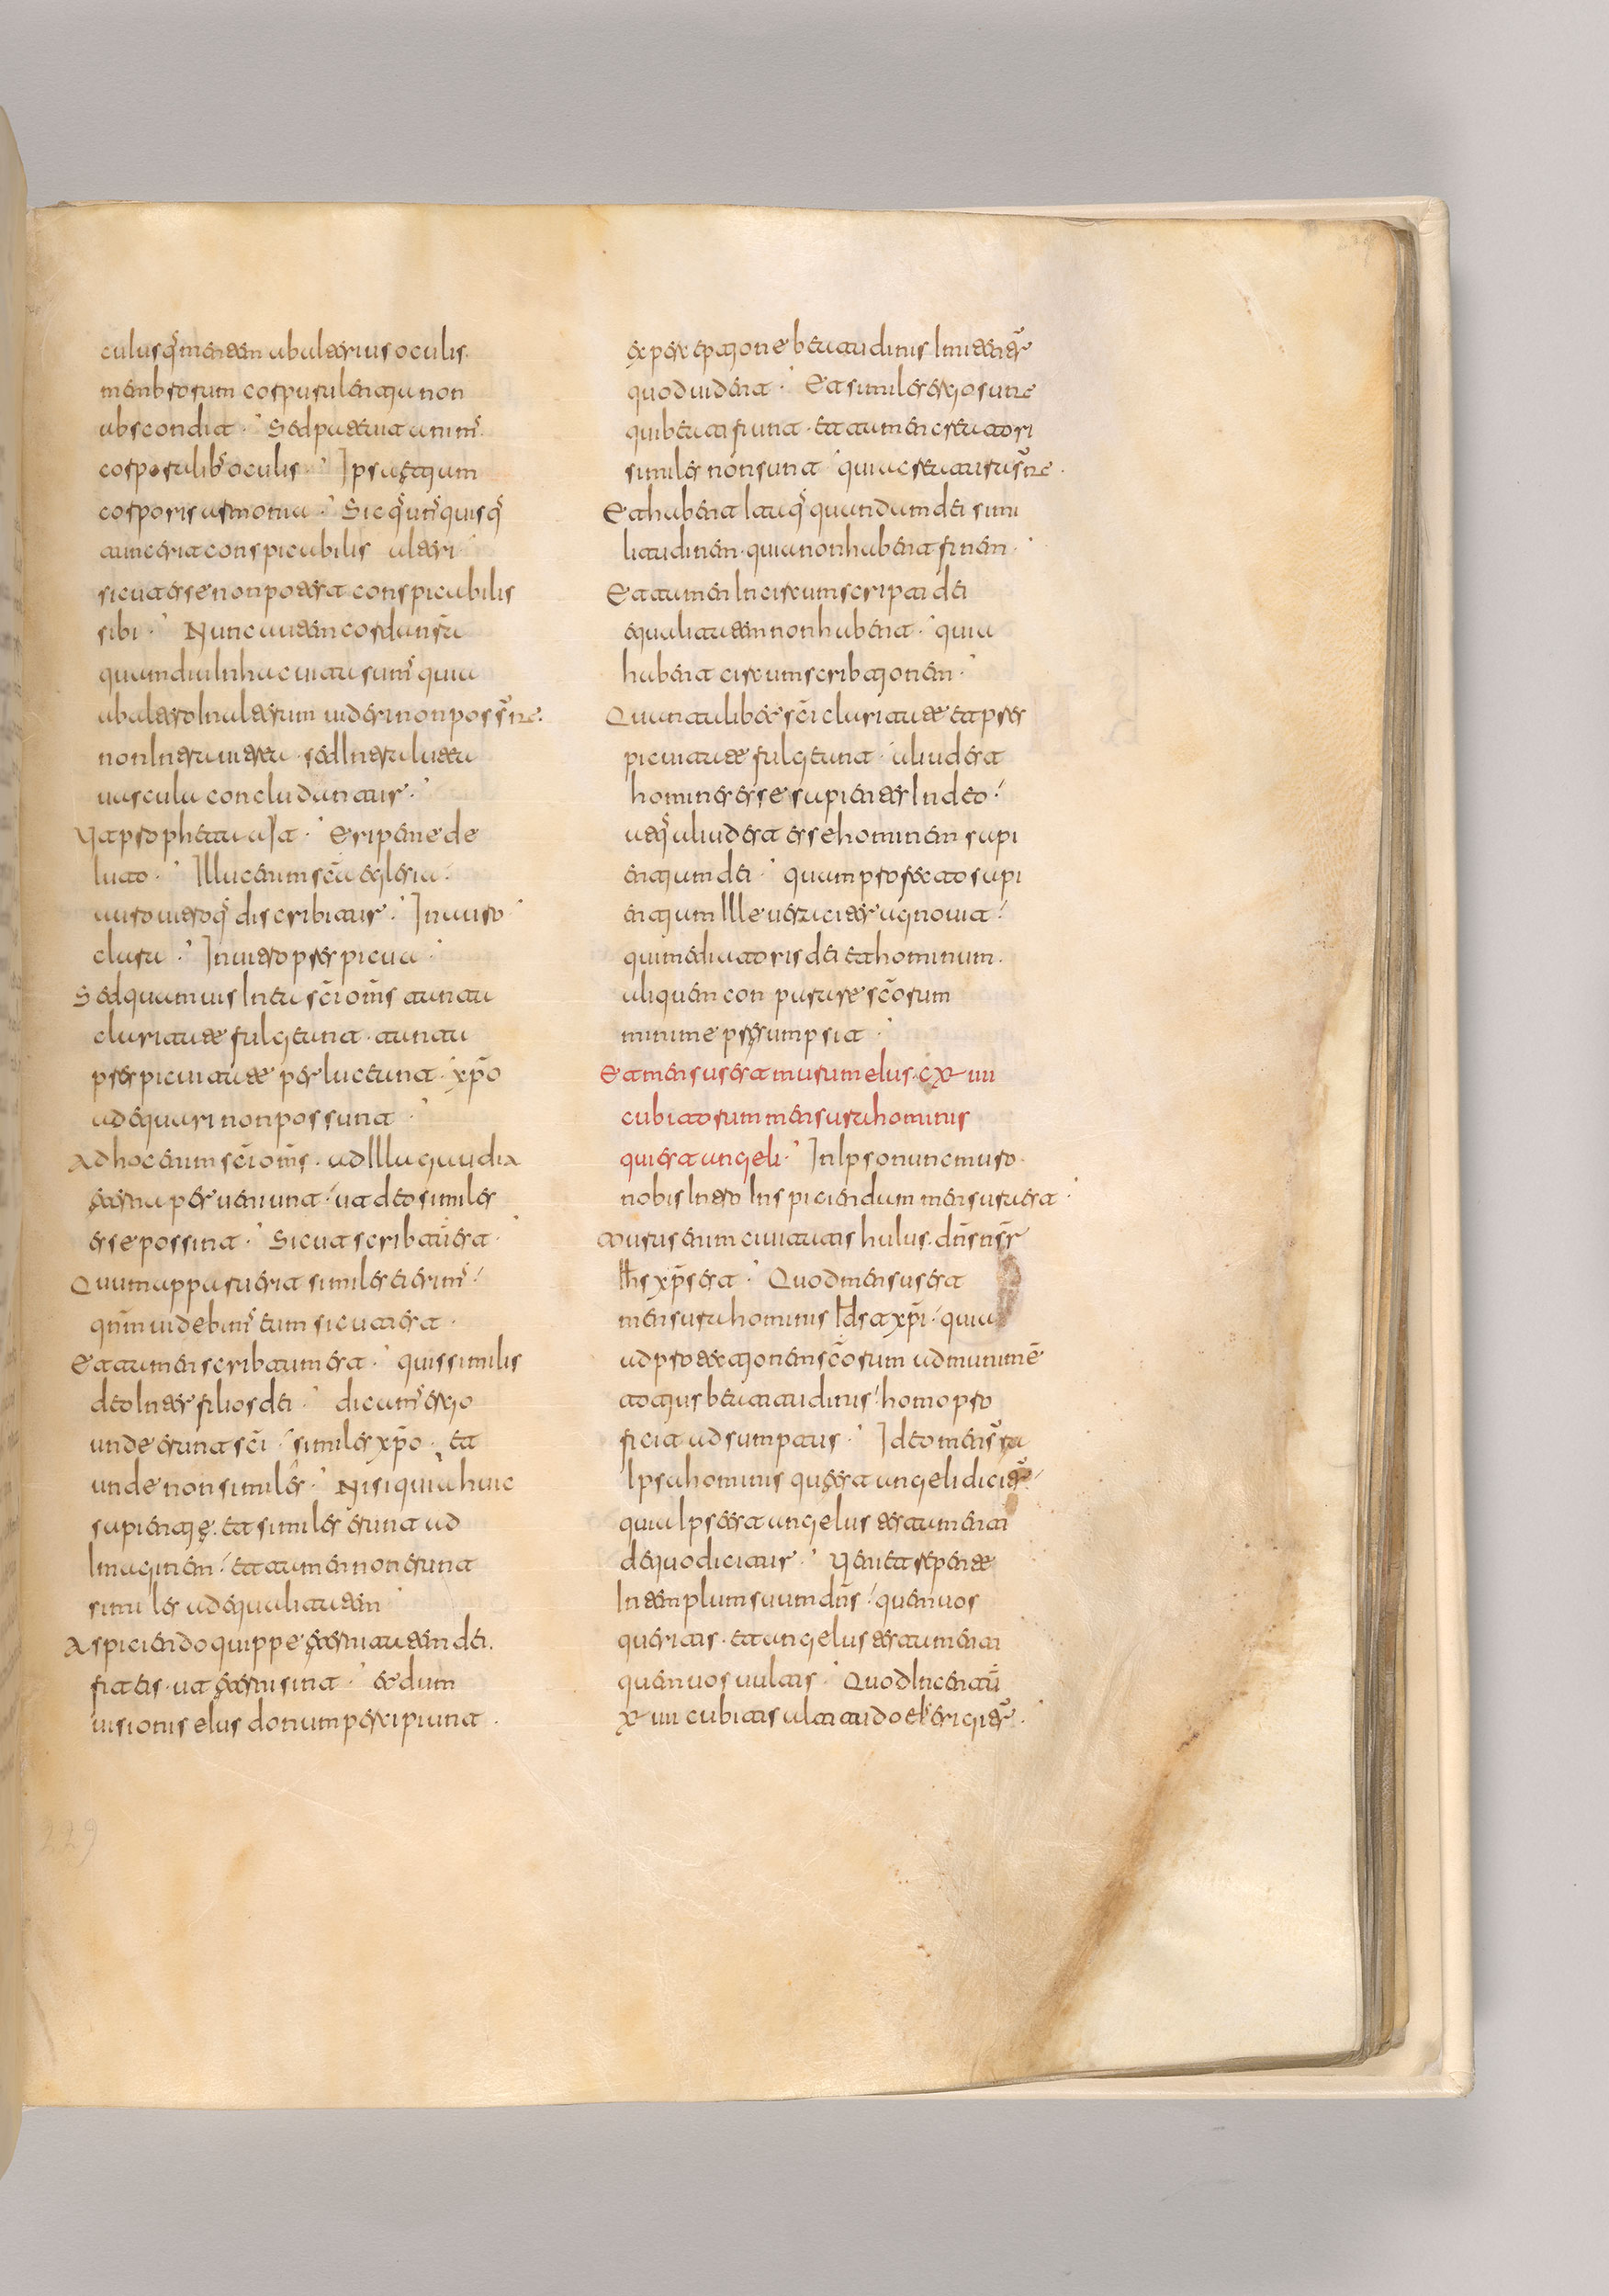 culusq; mentem ab alterius oculis.
menbrorum corpurulentia non
abscondit. Sed patebit anim;
corporalib; oculis. Ipsa ętiam
corporis armonia. Sicq; un;quisq;
tunc erit conspicabilis alteri
sicut esse non poterat conspicabilis
sibi. Nunc autem corda nsra
quamdiu in hac uita sum; quia
ab altero in alterum uideri non possne.
non intra uitrea. sed intra lutea
uascula concluduntur.
Ut propheta ait. Eripe me de
luto. Illuc enim sca eglesia.
auro uitroq; discribitur. In auro
clara. In uitro perspicua.
Sed quamuis in ea sci oms tanta
claritate fulgeunt. tanta
perspicuitate perluceunt. xpo
adequari non possunt.
Ad hoc enim sci oms. ad illa gaudia
ęterna perueniunt. ut deo similes
esse possint. Sicut scribtu est.
Quum apparuerit similes ei erim;
qnm uidebim; eum sicuti est.
Et tamen scribtum est. quis similis
deo inter filios dei. dicam; ergo
unde erunt sci. similes xpo. et
unde non similes. Nisi quia huic
sapientię. et similes erunt ad
imaginem. et tamen non erunt
similes ad equalitatem
Aspiciendo quippe ęternitatem dei.
fit eis. ut ęterni sint. et dum
uisionis eius donum percipiunt.
ex perceptione beatitudinis imitentur
quod uident. Et similes ergo sunt
qui beati fiunt. et tamen creatori
similes non sunt quia creatura sunt.
Et habent itaq; quandam dei simi
litudinem. quia non habent finem.
Et tamen incircumscripti dei
equalitatem non habent. quia
habent circumscribtionem.
Quantalibet sci claritate et pers
picuitate fulgeunt. aliud est
homines esse sapientes in deo.
atq; aliud est esse hominem sapi
entiam dei. quam profecto sapi
entiam ille ueraciter agnouit.
qui mediatoris dei et hominum.
aliquem conparare scorum
minime pręsumpsit.
Et mensus est murum eius. cxliiii
cubitorum mensura hominis
qui est angeli. In ipso nunc muro.
nobis intro inspiciendum mensura est.
Murus enim ciuitatis huius. dns nsr
ihs xps est. Quod mensus est
mensura hominis id st xpi. quia
ad protectionem scorum ad munimē
totius beatitudinis. homo pro
ficit adsumptus. Ideo mensra
ipsa hominis quę est angeli dicitur.
quia ipse est angelus testamenti
de quo dicitur. Veniet repente
in templum suum dns. quem uos
queritis. et angelus testamenti
quem uos uultis. Quod in centū
xliiii cubitis altitudo eius erigitur.
229